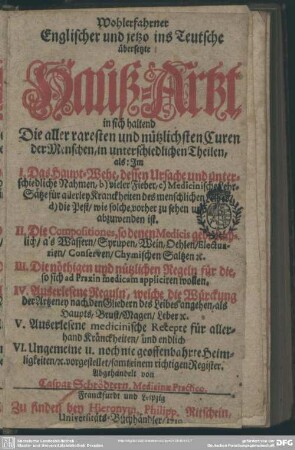 Wohlerfahrner
Englischer und jetzo ins Teutsche
übersetzte:
Hauß-Artzt
in sich haltend
Die aller raresten und nützlichsten Curen
der Menschen, in unterschiedlichen Theilen,
als: Im
I. Das Haupt-Wehe, dessen Ursache und unter-
schiedliche Nahmen, b) vieler Fieber, c) Medicinische
Sätze für allerley Kranckheiten des menschlichen
d) die Pest, wie solche vorher zu sehen u.
abzuwenden ist.
II. Die Compositiones, so denen Medicis
lich, als Wassern, Syrupen, Wein, Oehlen, Electua-
rien, Conserven, Chymischen Saltzen ꝛc.
III. Die nöthigen und nützlichen Regeln für die,
so sich ad Praxin medicam appliciren wollen.
IV. Auserlesene Reguln, welche die Würckung
der Artzeney nach den Gliedern des Leibes angehen, als
Haupts, Brust, Magen, Leber ꝛc.
V. Auserlesene medicinische Recepte für aller-
hand Kranckheiten, und endlich
VI. Ungemeine u. noch nie geoffenbahrte Heim-
ligkeiten, ꝛc. vorgestellet, samt einem richtigen Register.
Abgehandelt von
Caspar Schrödern, Medicinæ Practico.
Franckfurth und Leipzig
Zu finden bey Hieronym. Philipp. Ritscheln,
Universitäts-Buchhändler,